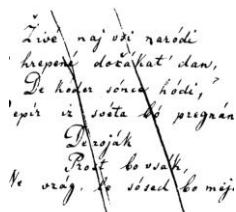 Živé naj vsi naródi
hrepené dočakat' dan,
De kóder sónce hódi,
epir iz svéta bó pregnan
De roják
Prost bo vsák,
Ne vrag, le sósed bo mejá